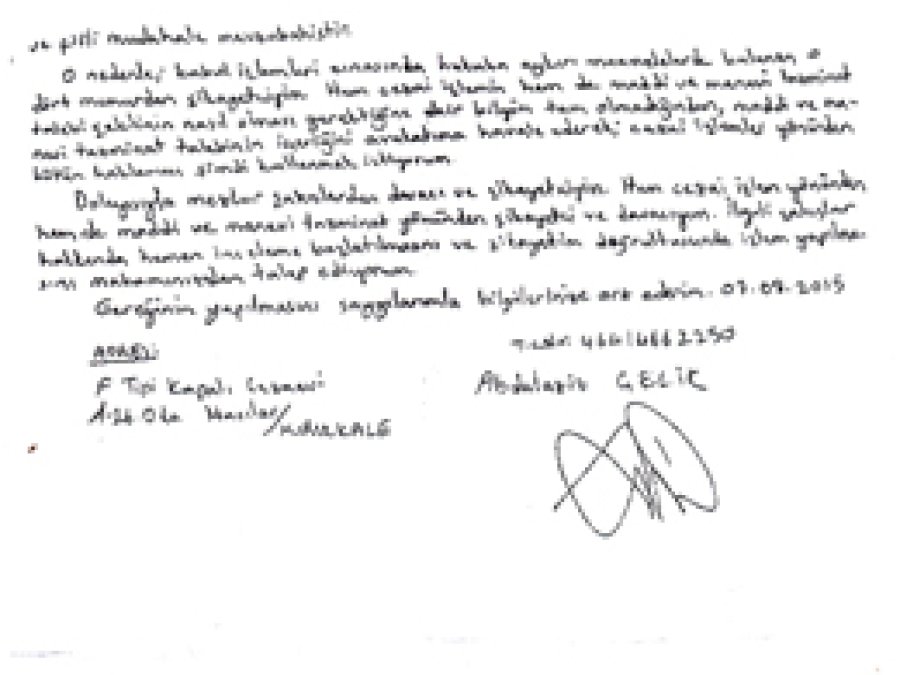 ve fiili müdahale mevzubahistir.
O nedenle; kabul işlemleri sırasında hukuka aykırı muamelelerde bulunan o
dört memurdan şikayetçiyim. Hem cezai işlemin hem de maddi ve manevi tazminat
talebi şeklinin nasıl olması gerektiğine dair bilgim tam olmadığından, maddi ve ma-
nevi tazminat talebinin içeriğini avukatıma havale ederek; cezai işlemler yönünden
bütün haklarımı şimdi kullanmak istiyorum.
Dolayısıyla mezkur şahıslardan davacı ve şikayetçiyim. Hem cezai işlem yönünden
hem de maddi ve manevi tazminat yönünden şikayetçi ve davacıyım. İlgili şahıslar
hakkında hemen inceleme başlatılmasını ve şikayetim doğrultusunda işlem yapılma-
sını makamınızdan talep ediyorum.
Gereğinin yapılmasını saygılarımla bilgilerinize arz ederim. 07.09.2015
ADRES:
F Tipi Kapalı Cezaevi
Hacılar/KIRIKKALE
Abdulaziz ÇELİK